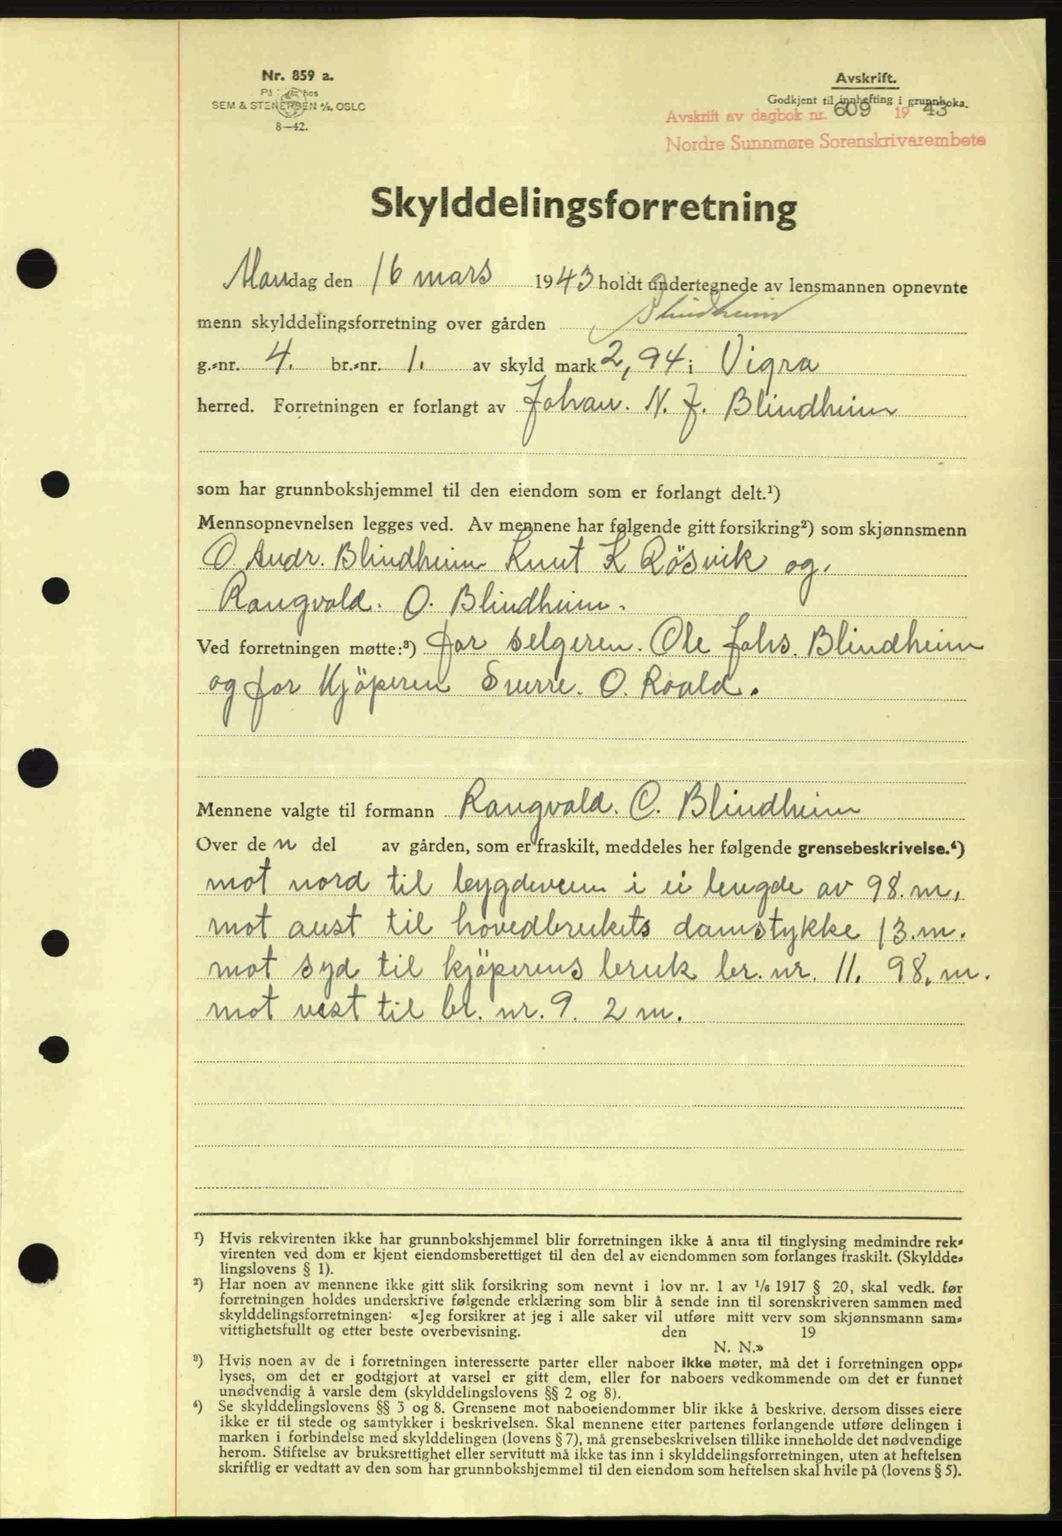 Nr. 859 a.
SEM & STENERSEN A/S, OSLO
8—42.
Avskrift.
Godkjent til innhefting i grunnboka.
Avskrift av dagbok nr. 609 1943
Nordre Sunnmøre Sorenskrivarembete
Skylddelingsforretning
Mandag den 16 mars 1943 holdt undertegnede av lensmannen opnevnte
menn skylddelingsforretning over gården Blindheim
g.-nr. 4. br.-nr. 1. av skyld mark 2,94 i Vigra
herred. Forretningen er forlangt av Johan. N. J. Blindheim
som har grunnbokshjemmel til den eiendom som er forlangt delt.¹)
Mennsopnevnelsen legges ved. Av mennene har følgende gitt forsikring²) som skjønnsmenn
O Andr. Blindheim Knut K Røsvik og,
Rangvald. O. Blindheim.
Ved forretningen møtte:³) for selgeren. Ole Johs. Blindheim
og for Kjöperen Sverre. O. Roald.
Mennene valgte til formann Rangvald. O. Blindheim
Over den del av gården, som er fraskilt, meddeles her følgende grensebeskrivelse.⁴)
mot nord til bygdeveien i ei lengde av 98. m,
mot aust til hovedbrukets damstykke 13. m.
mot syd til kjöperens bruk br. nr. 11. 98. m.
mot vest til br. nr. 9. 2 m.
¹) Hvis rekvirenten ikke har grunnbokshjemmel blir forretningen ikke å anta til tinglysing medmindre rek-
virenten ved dom er kjent eiendomsberettiget til den del av eiendommen som forlanges fraskilt. (Skyldde-
lingslovens § 1).
²) Har noen av mennene ikke gitt slik forsikring som nevnt i lov nr. 1 av 1/6 1917 § 20, skal vedk. før
forretningen holdes underskrive følgende erklæring som blir å sende inn til sorenskriveren sammen med
skylddelingsforretningen: «Jeg forsikrer at jeg i alle saker vil utføre mitt verv som skjønnsmann sam-
vittighetsfullt og etter beste overbevisning. den 19
N. N.»
³) Hvis noen av de i forretningen interesserte parter eller naboer ikke møter, må det i forretningen opp-
lyses, om det er godtgjort at varsel er gitt dem, eller for naboers vedkommende om det er funnet
unødvendig å varsle dem (skylddelingslovens §§ 2 og 8).
⁴) Se skylddelingslovens §§ 3 og 8. Grensene mot naboeiendommer blir ikke å beskrive, dersom disses eiere
ikke er til stede og samtykker i beskrivelsen. Skal mennene etter partenes forlangende utføre delingen i
marken i forbindelse med skylddelingen (lovens § 7), må grensebeskrivelsen tillike inneholde det nødvendige
herom. Stiftelse av bruksrettighet eller servitutt må ikke tas inn i skylddelingsforretningen, uten at heftelsen
skriftlig er vedtatt av den som har grunnbokshjemmel til den eiendom som heftelsen skal hvile på (lovens § 5).